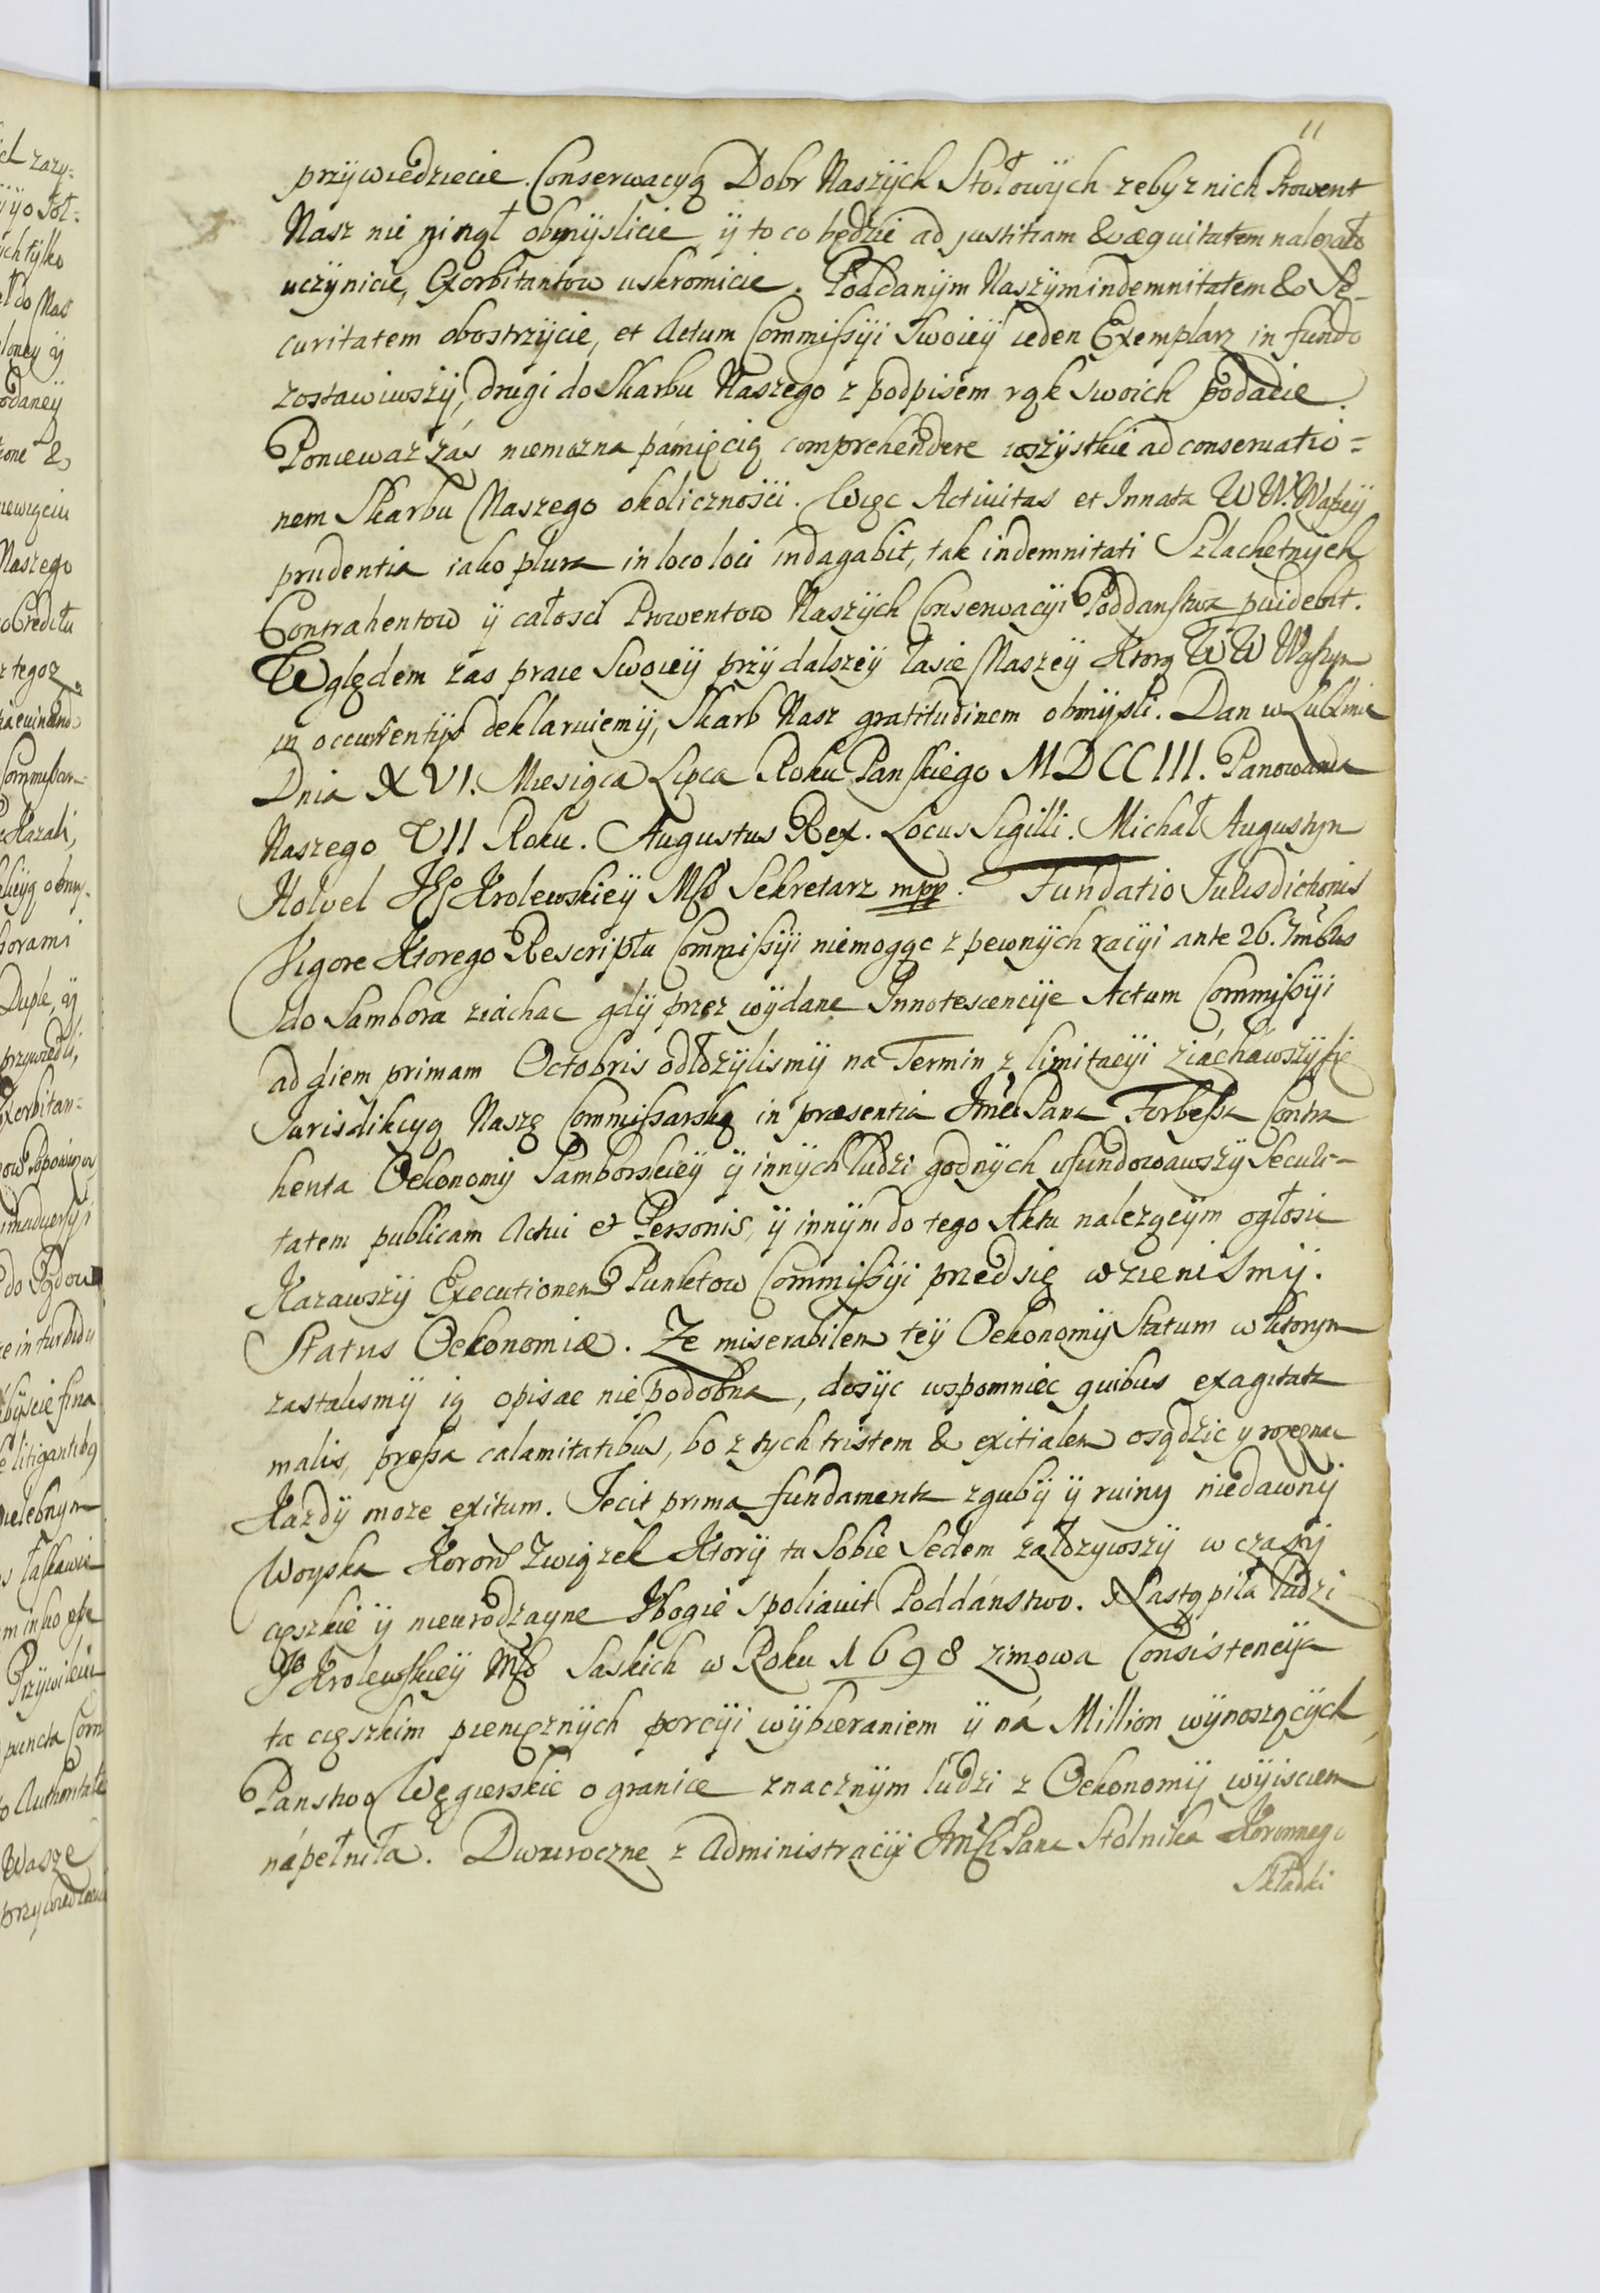 11
przÿwiedziecie. Conserwacyą Dobr Naszÿch Stołowÿch zeby z nich Prowent
Nasz nie ginął obmÿslicie ÿ to co będzie ad justitiam & æquitatem nalezało
uczÿnicie, Exorbitantow uskromicie. Poddanÿm Naszÿm indemnitatem & Se-
curitatem obostrzÿcie, et Actum Commissÿi Swoieÿ ieden Exemplarz in fundo
zostawiwszÿ, drugi do Skarbu Naszego z podpisem rąk swoich podacie.
Poniewaz zás niemozna pámięcią comprehendere wszÿstkie ad conservatio=
nem Skarbu Naszego okolicznosci. Więc Activitas et Innata W W. Waszeÿ
prudentia iako plura in loco loci indagabit, tak indemnitati Szlachetnÿch
Contrahentow ÿ całosci Prowentow Naszÿch Conserwacÿi Poddanstwa pvidebit.
Względem zas prace Swoieÿ przÿ dalszeÿ łasce Naszeÿ Ktorą W W Waszym
in occurrentijs deklaruiemÿ, Skarb Nasz gratitudinem obmÿsli. Dan w Lublinie
Dnia XVI. Miesiąca Lipca Roku Panskiego MDCCIII. Panowania
Naszego VII Roku. Augustus Rex. Locus Sigilli. Michał Augustyn
Holvel JE Krolewskieÿ Msci Sekretarz mpp. Fundatio Jurisdictionis
Vigore Ktorego Rescriptu Commissÿi niemogąc z pewnÿch racÿi ante 26. 7mbris
do Sambora ziáchac gdÿ przez wÿdane Innotescencÿe Actum Commissÿi
ad diem primam Octobris odłozÿlismÿ na Termin z limitacÿi ziácháwszÿ się
Jurisdikcyą Naszą Commissarską in præsentia Jmci Pana Forbessa Contra
henta Oekonomÿ Samborskieÿ ÿ innÿch ludzi godnÿch ufundowawszÿ Securi-
tatem publicam Actui et Personis, ÿ innÿm do tego Aktu nalezącÿm ogłosic
Kazawszÿ Executionem Punktow Commissÿi przedsię wzieniSmÿ.
Status Oekonomiæ. Ze miserabilem teÿ Oekonomÿ Statum w Ktorym
zastalismÿ ią opisac niepodobna, dosÿc wspomniec quibus exagitata
malis, pressa calamitatibus, bo z tych tristem & exitialem osądzic y rozeznac
Kazdÿ moze exitum. Jecit prima fundamenta zgubÿ ÿ ruiny niedawnÿ
Woyska Koron Związek Ktorÿ tu Sobie Sedem załozywszÿ w czasÿ
cięszkie ÿ nieurodzayne Vbogie spoliavit Poddánstwo. Nastąpiła ludzi
JE Krolewskieÿ Msci Saskich w Roku 1698 zimowa Consistencÿa
ta cięszkim pienięznÿch porcÿi wÿbieraniem ÿ ná Million wÿnoszącÿch
Panstwo Węgierskie o granice znacznÿm ludzi z Oekonomÿ wÿisciem
nápełniła. Dwuroczne z Administracÿi Jmści Pana Stolnika Koronnego
Składki